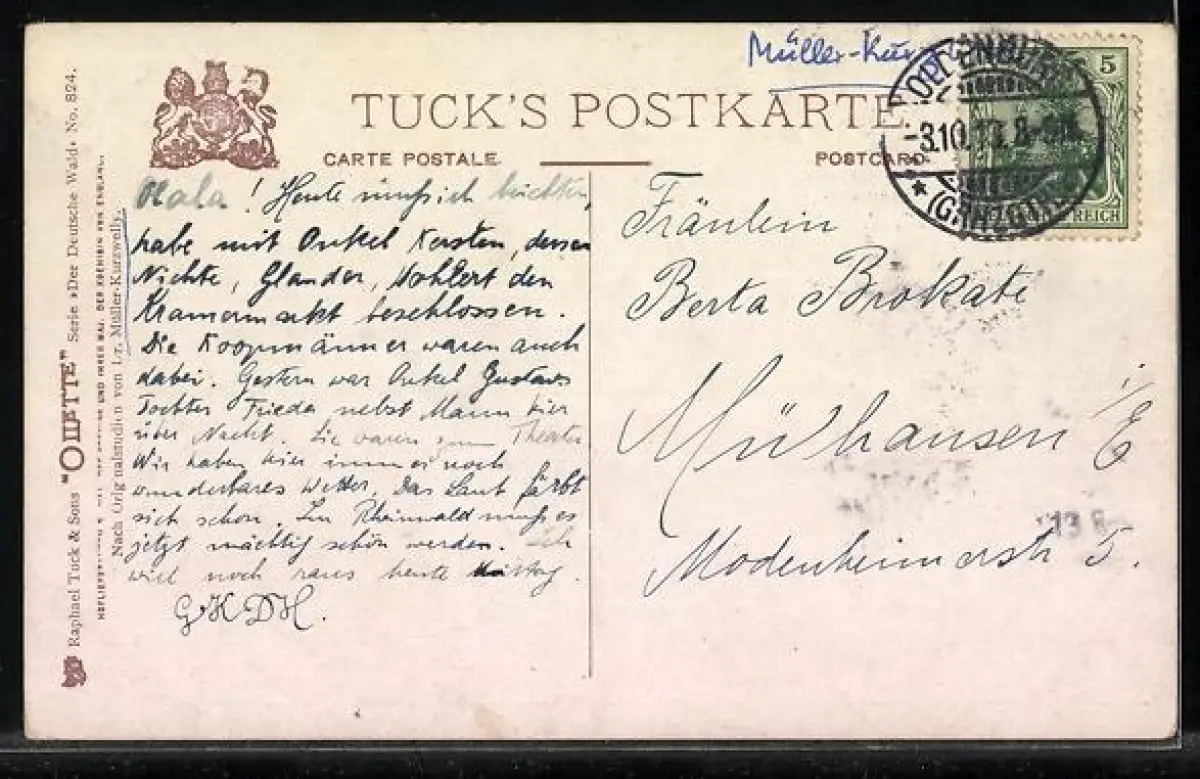 Müller-Kurzwelly
TUCK'S POSTKARTE.
CARTE POSTALE.
POSTCARD.
OLDENBURG
-3.10.13. 8-9N.
* (GRHZGT) *
5
REICH
Raphael Tuck & Sons "OILETTE" Serie »Der Deutsche Wald« No. 824.
HOFLIEFERANTEN UND IHRER MAJ. DER KOENIGIN VON ENGLAND.
Nach Originalstudien von Müller-Kurzwelly.
Hala! Heute muß ich beichten,
habe mit Onkel Kersten, dessen
Nichte, Glander, Wohlert den
Kramermarkt beschlossen.
Die Koopmänner waren auch
dabei. Gestern war Onkel Gustavs
Tochter Frieda nebst Mann hier
über Nacht. Sie waren zum Theater.
Wir haben hier immer noch
wunderbares Wetter. Das Laub färbt
sich schon. Im Rheinwald muß es
jetzt mächtig schön werden. Ich
will noch raus heute Mittag.
G K D H.
Fräulein
Berta Brokate
Mülhausen i/E
Modenheimerstr 5.
13 8